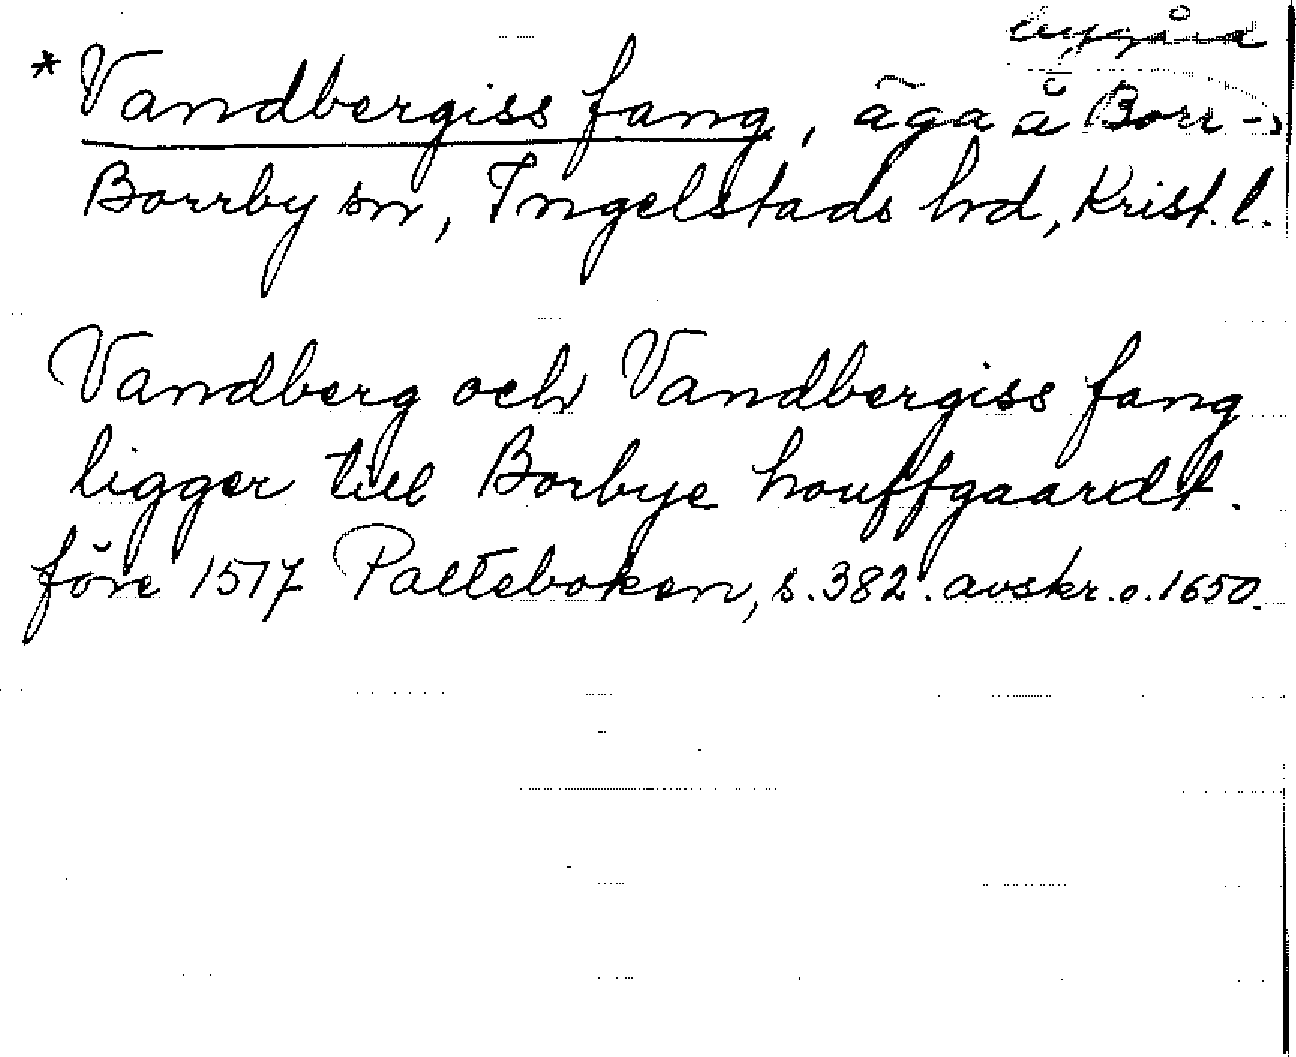 bygård
* Vandbergiss fang, äga å Borr-
Borrby sn, Ingelstads hrd, Krist. l.
Vandberg och Vandbergiss fang
ligger till Borbye houffgaardt.
före 1517 Palteboken, s. 382. avskr. o. 1650.